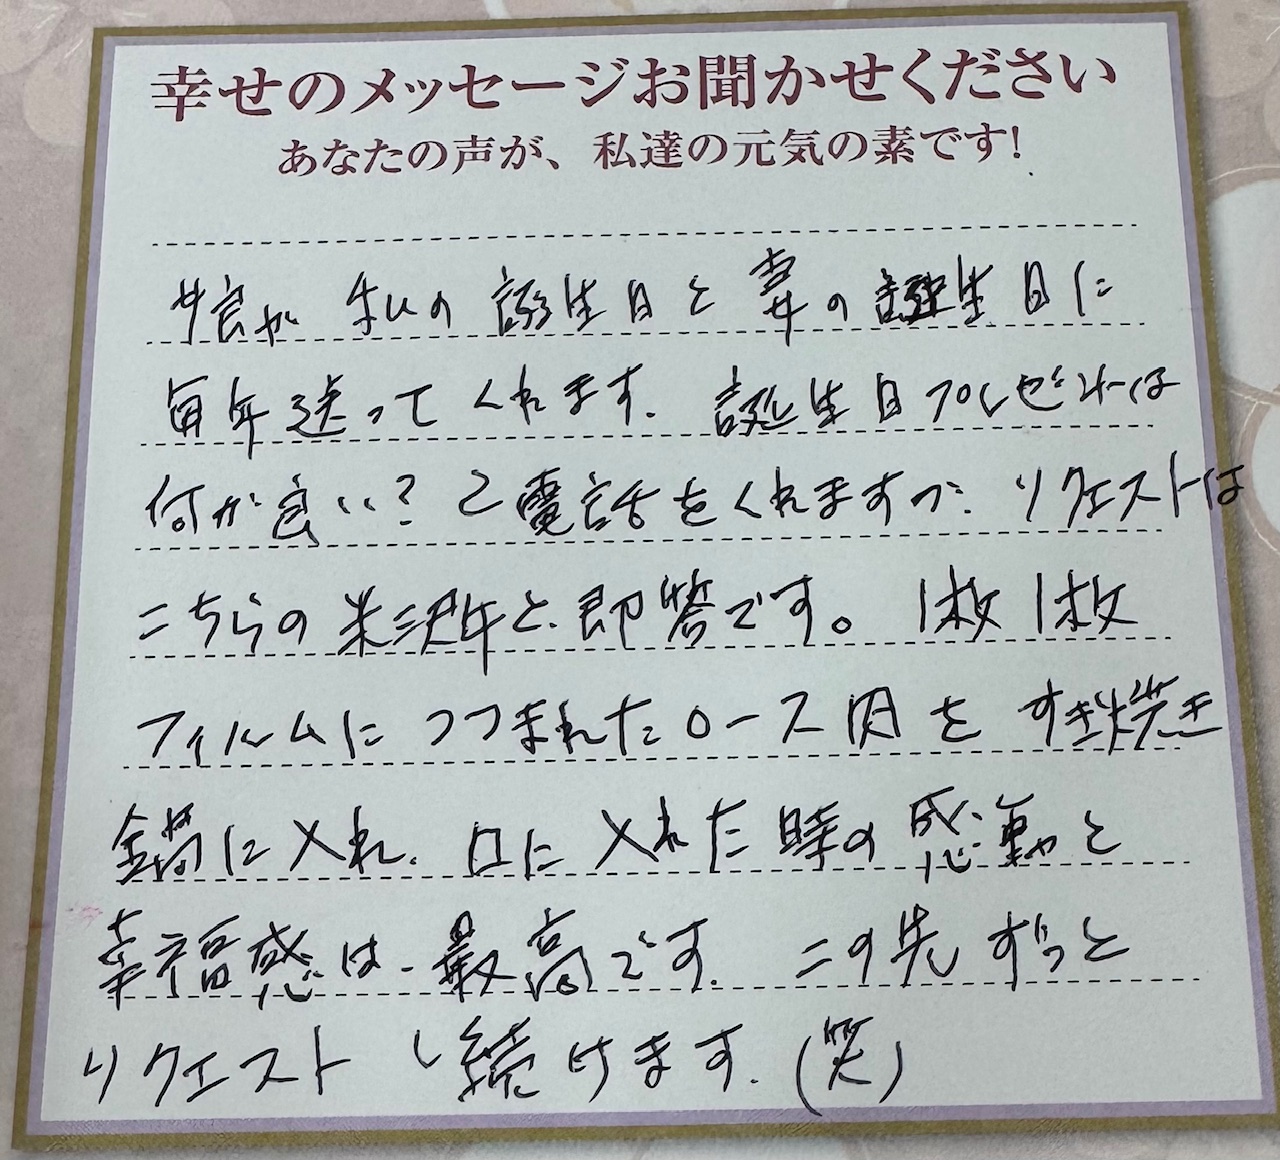 幸せのメッセージお聞かせください
あなたの声が、私達の元気の素です!
娘が 私の 誕生日と 妻の 誕生日に
毎年送ってくれます。誕生日プレゼントは
何が良い?と電話をくれますが、リクエストは
こちらの米沢牛と、即答です。1枚1枚
フィルムにつつまれたロース肉をすき焼き
鍋に入れ、口に入れた時の感動と
幸福感は、最高です。この先ずっと
リクエストし続けます。(笑)